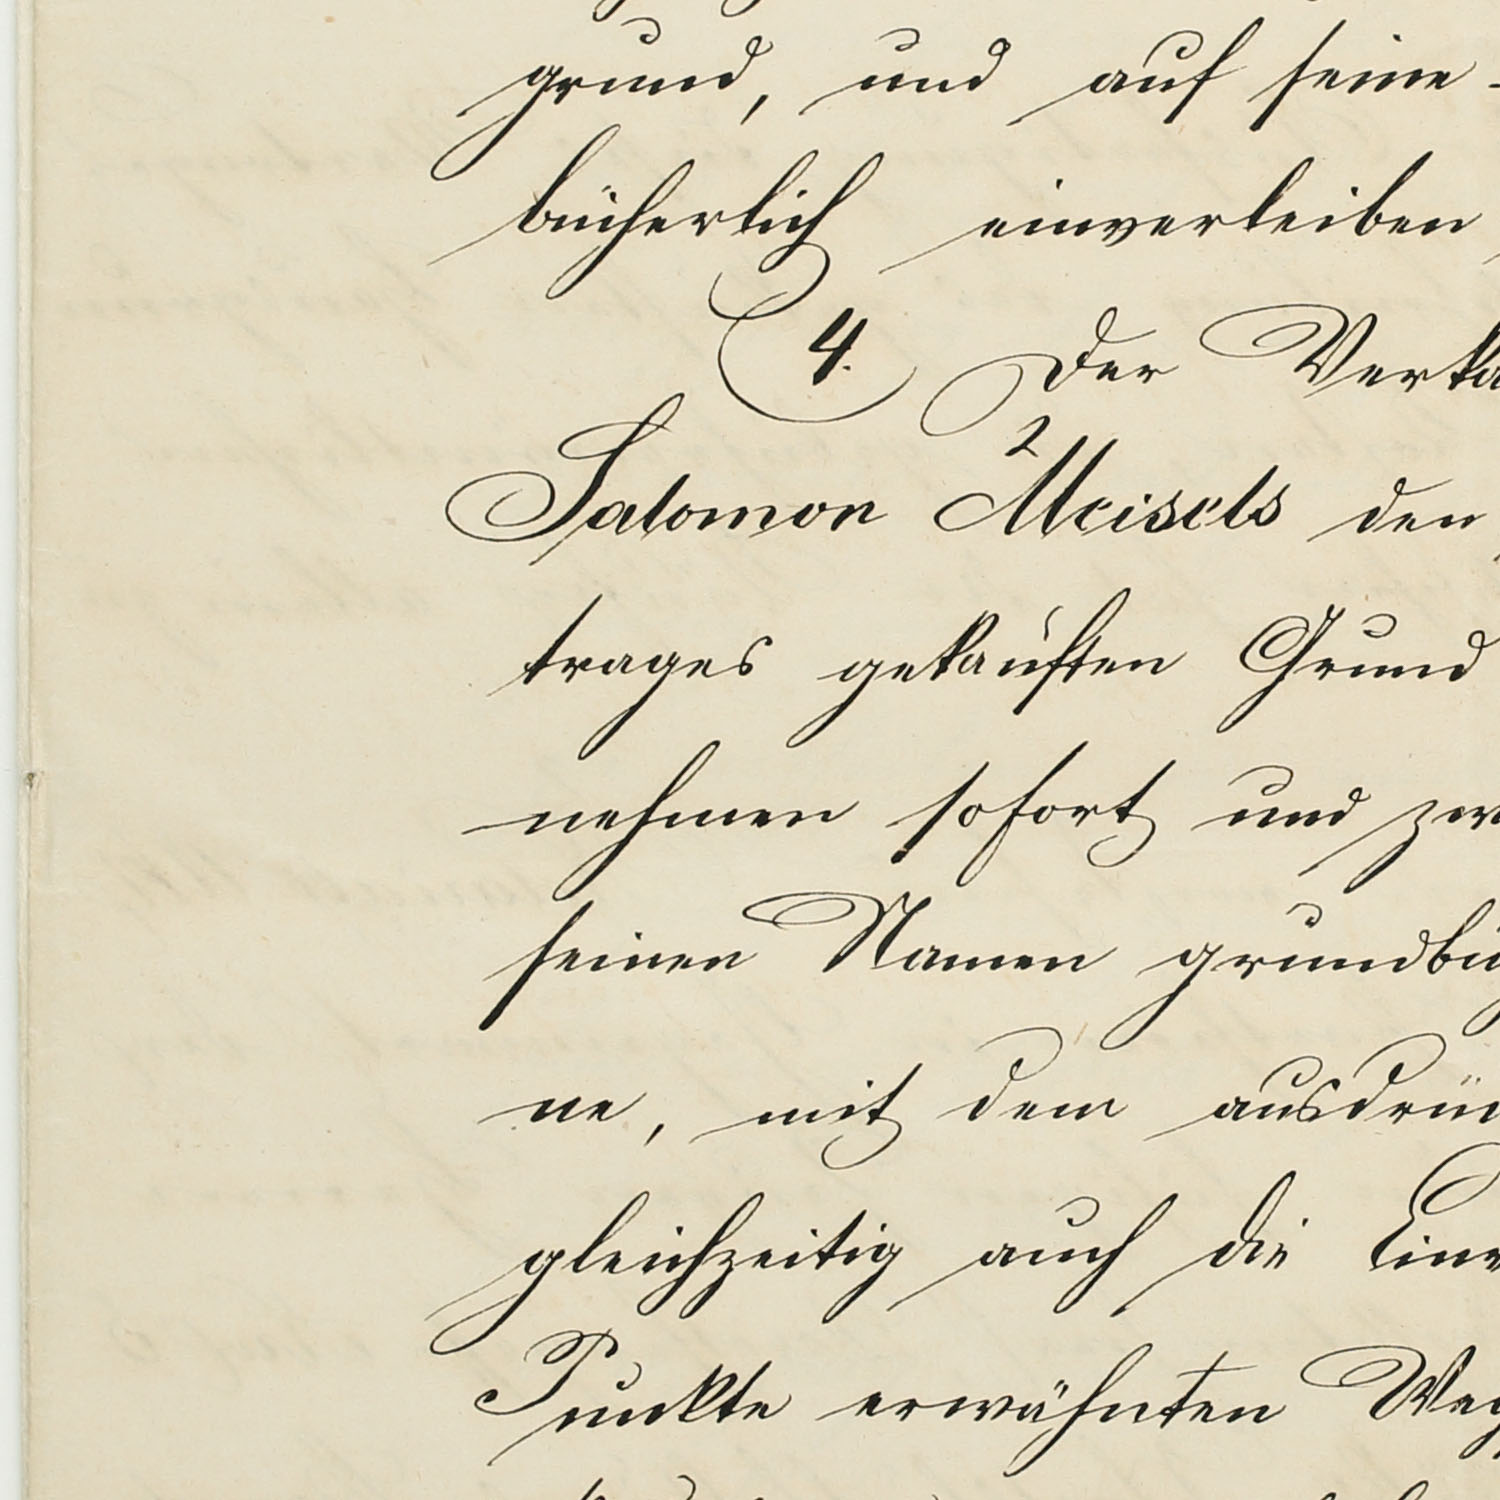 grund, und auf seine
bücherlich einverleiben
4. Der
Salomon Meisels den
trages gekauften Grund
nehmen sofort und
seinen Namen
ne, mit dem
gleichzeitig auch die
Punkte erwähnten